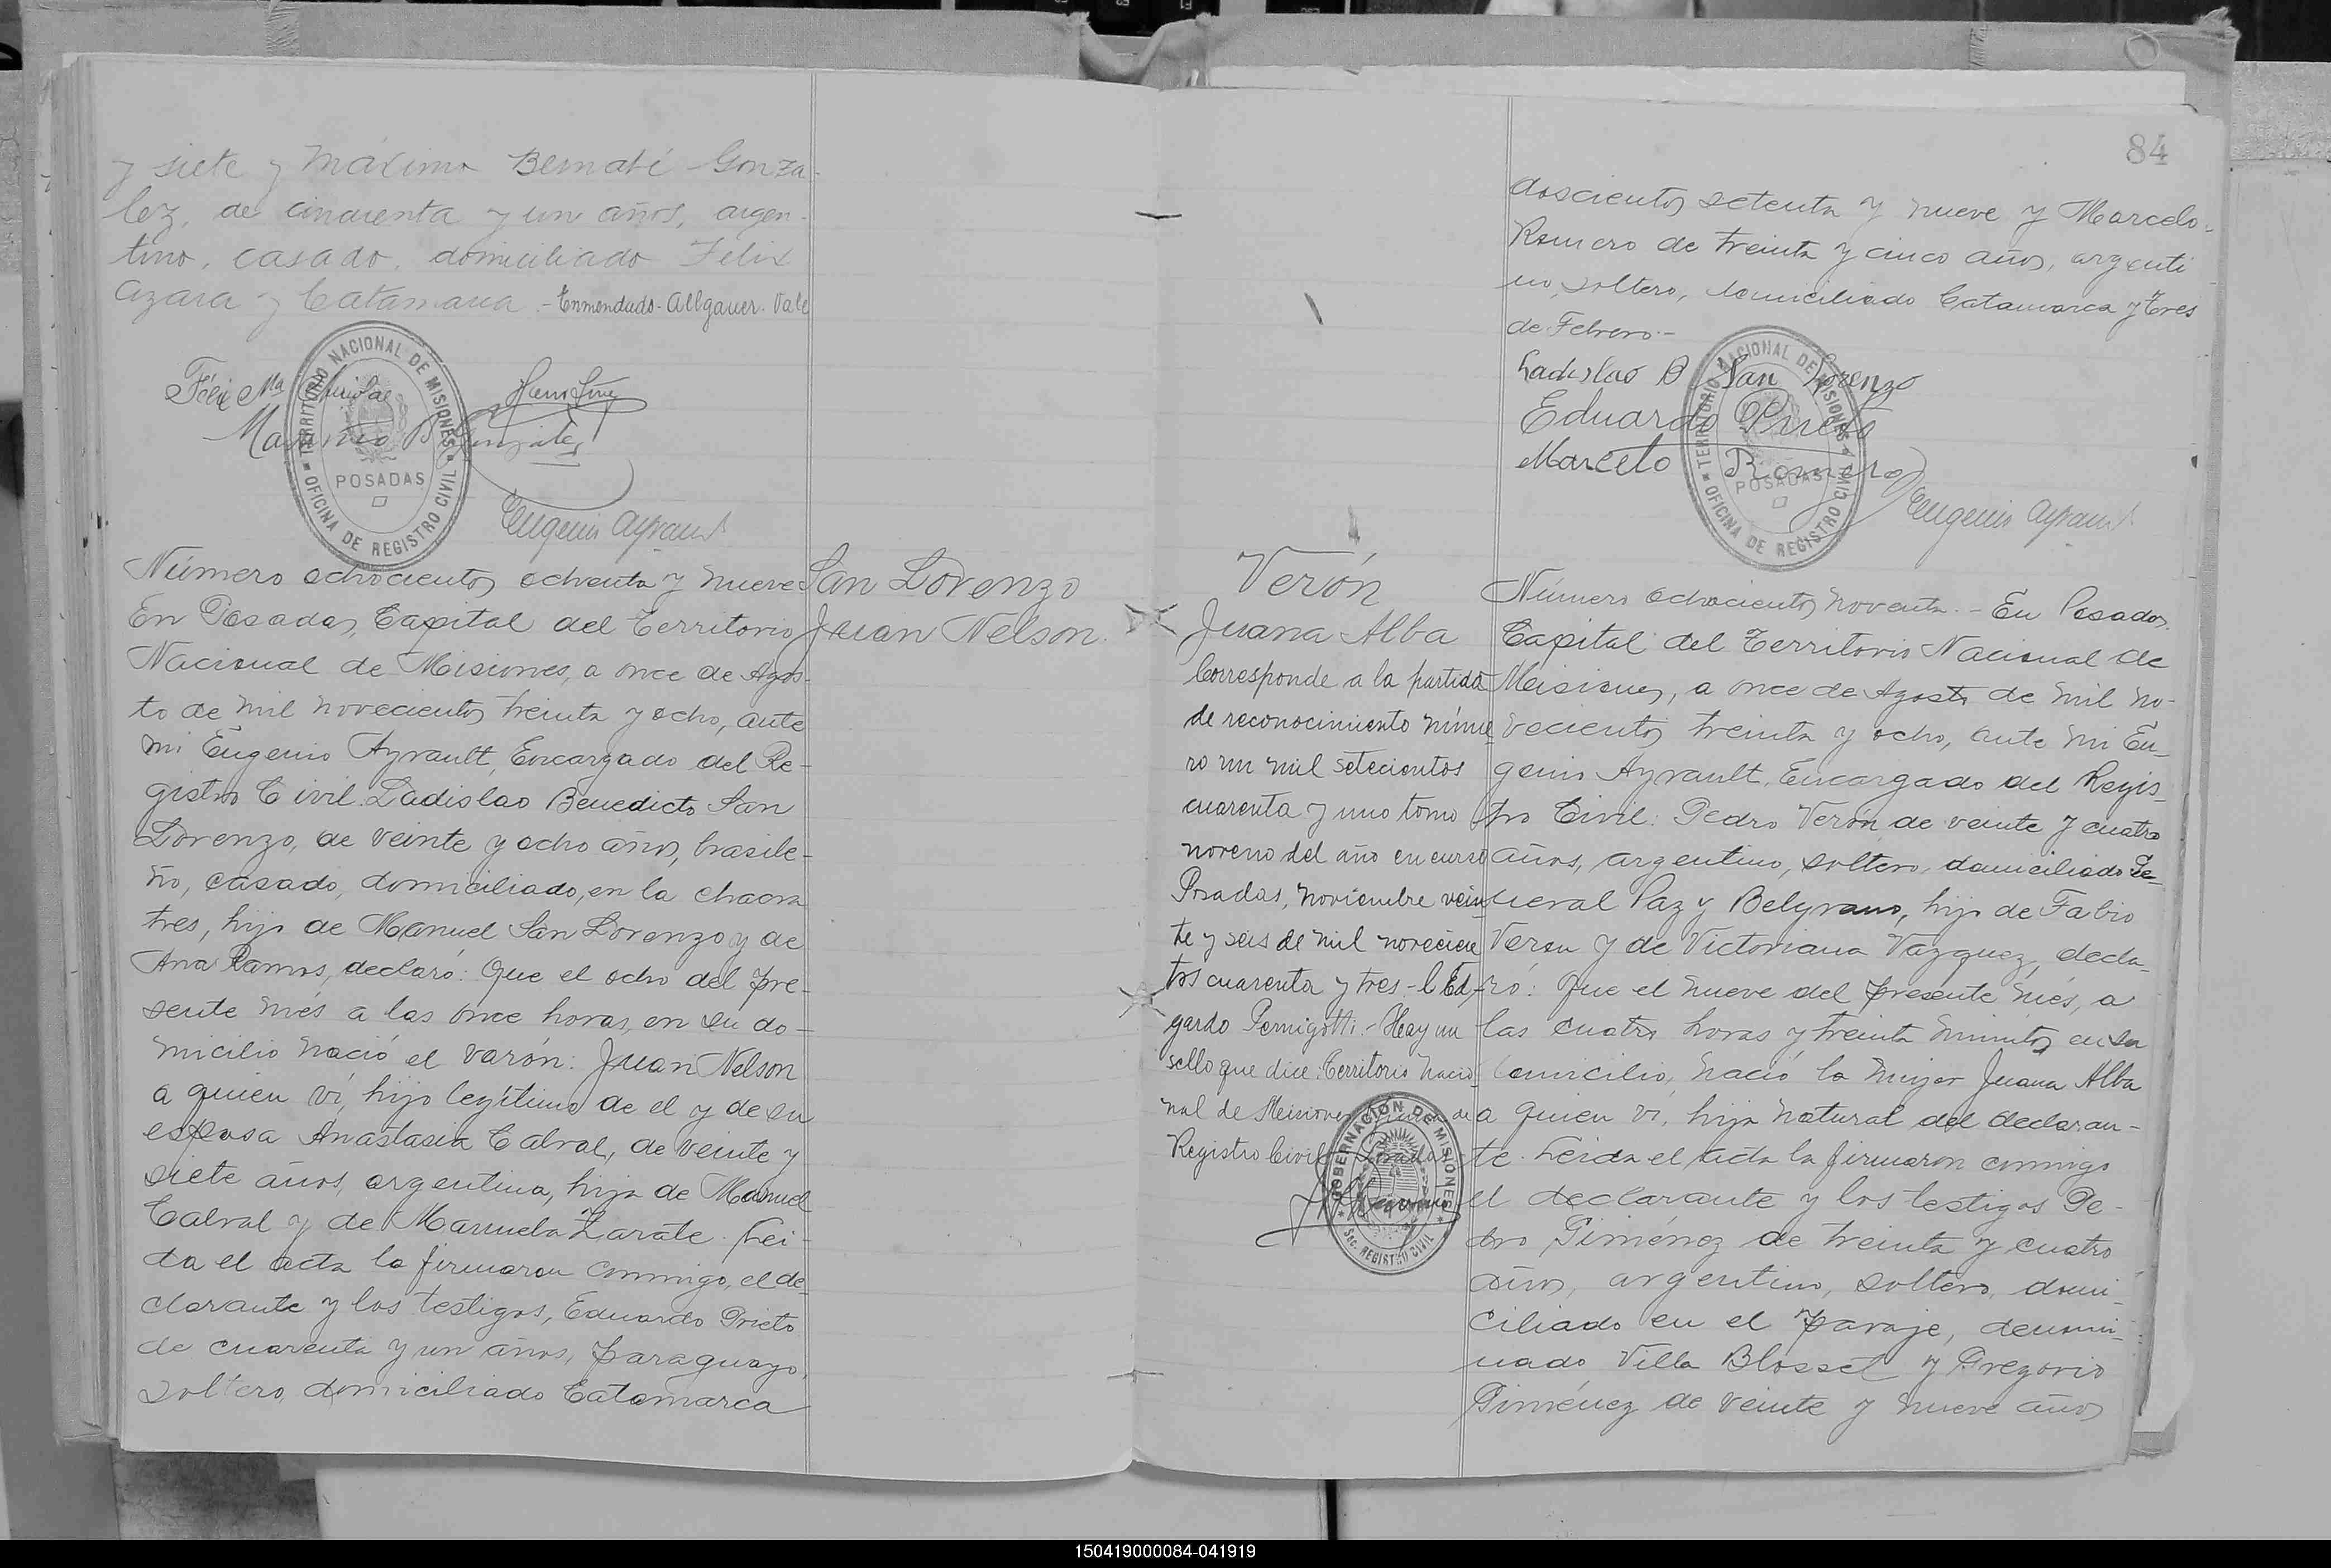 y siete y Máximo Bernabé Gonza-
lez, de cincuenta y un años, argen-
tino, casado, domiciliado Félix
Azara y Catamarca.- Enmendado- Allgauer. Vale
Félix Mª
TERRITORIO NACIONAL DE MISIONES
POSADAS
OFICINA DE REGISTRO CIVIL
Maximo B Gonzalez
Eugenio Ayrault
Número ochocientos ochenta y nueve
En Posadas, Capital del Territorio
Nacional de Misiones, a once de Agos-
to de mil novecientos treinta y ocho, ante
mi Eugenio Ayrault, Encargado del Re-
gistro Civil. Ladislao Benedicto San
Lorenzo, de veinte y ocho años, brasile-
ño, casado, domiciliado, en la chacra
tres, hijo de Manuel San Lorenzo y de
Ana Ramos, declaró: Que el ocho del pre-
sente més a las once horas, en su do-
micilio nació el varón: Juan Nelson
a quien ví, hijo legítimo de el y de su
esposa Anastasia Cabral, de veinte y
siete años, argentina, hija de Manuel
Cabral y de Manuela Zarate. Lei-
da el acta la firmaron conmigo, el de-
clarante y los testigos, Eduardo Prieto
de cuarenta y un años, paraguayo,
soltero, domiciliado Catamarca
San Lorenzo
Juan Nelson.
84
doscientos setenta y nueve y Marcelo
Romero de treinta y cinco años, argenti
no, soltero, domiciliado Catamarca y Tres
de Febrero.-
Ladislao B San Lorenzo
Eduardo Prieto
Marcelo Romero
TERRITORIO NACIONAL DE MISIONES
POSADAS
OFICINA DE REGISTRO CIVIL
Eugenio Ayrault
Verón
Juana Alba
Corresponde a la partida
de reconocimiento núme
ro un mil setecientos
cuarenta y uno tomo
noveno del año en curso
Posadas, noviembre vein
te y seis de mil novecien
tos cuarenta y tres.- Ed-
gardo Pernigotti.- Hay un
sello que dice: Territorio Nacio
nal de Misiones de
Registro Civil Posadas
GOBERNACIÓN DE MISIONES
Sec. REGISTRO CIVIL
Número ochocientos noventa.- En Posadas
Capital del Territorio Nacional de
Misiones, a once de Agosto de mil no-
vecientos treinta y ocho, ante mi Eu-
genio Ayrault, Encargado del Regis-
tro Civil: Pedro Verón, de veinte y cuatro
años, argentino, soltero, domiciliado Ge-
neral Paz y Belgrano, hijo de Fabio
Veron y de Victoriana Vazquez, decla-
ró: Que el nueve del presente més, a
las cuatro horas y treinta minutos en su
domicilio, nació la mujer Juana Alba
a quien ví, hija natural del declaran-
te. Leida el acta la firmaron conmigo
el declarante y los testigos Pe-
dro Giménez de treinta y cuatro
años, argentino, soltero, domi-
ciliado en el paraje, denomi-
nado Villa Blosset y Gregorio
Giménez de veinte y nueve años
150419000084-041919